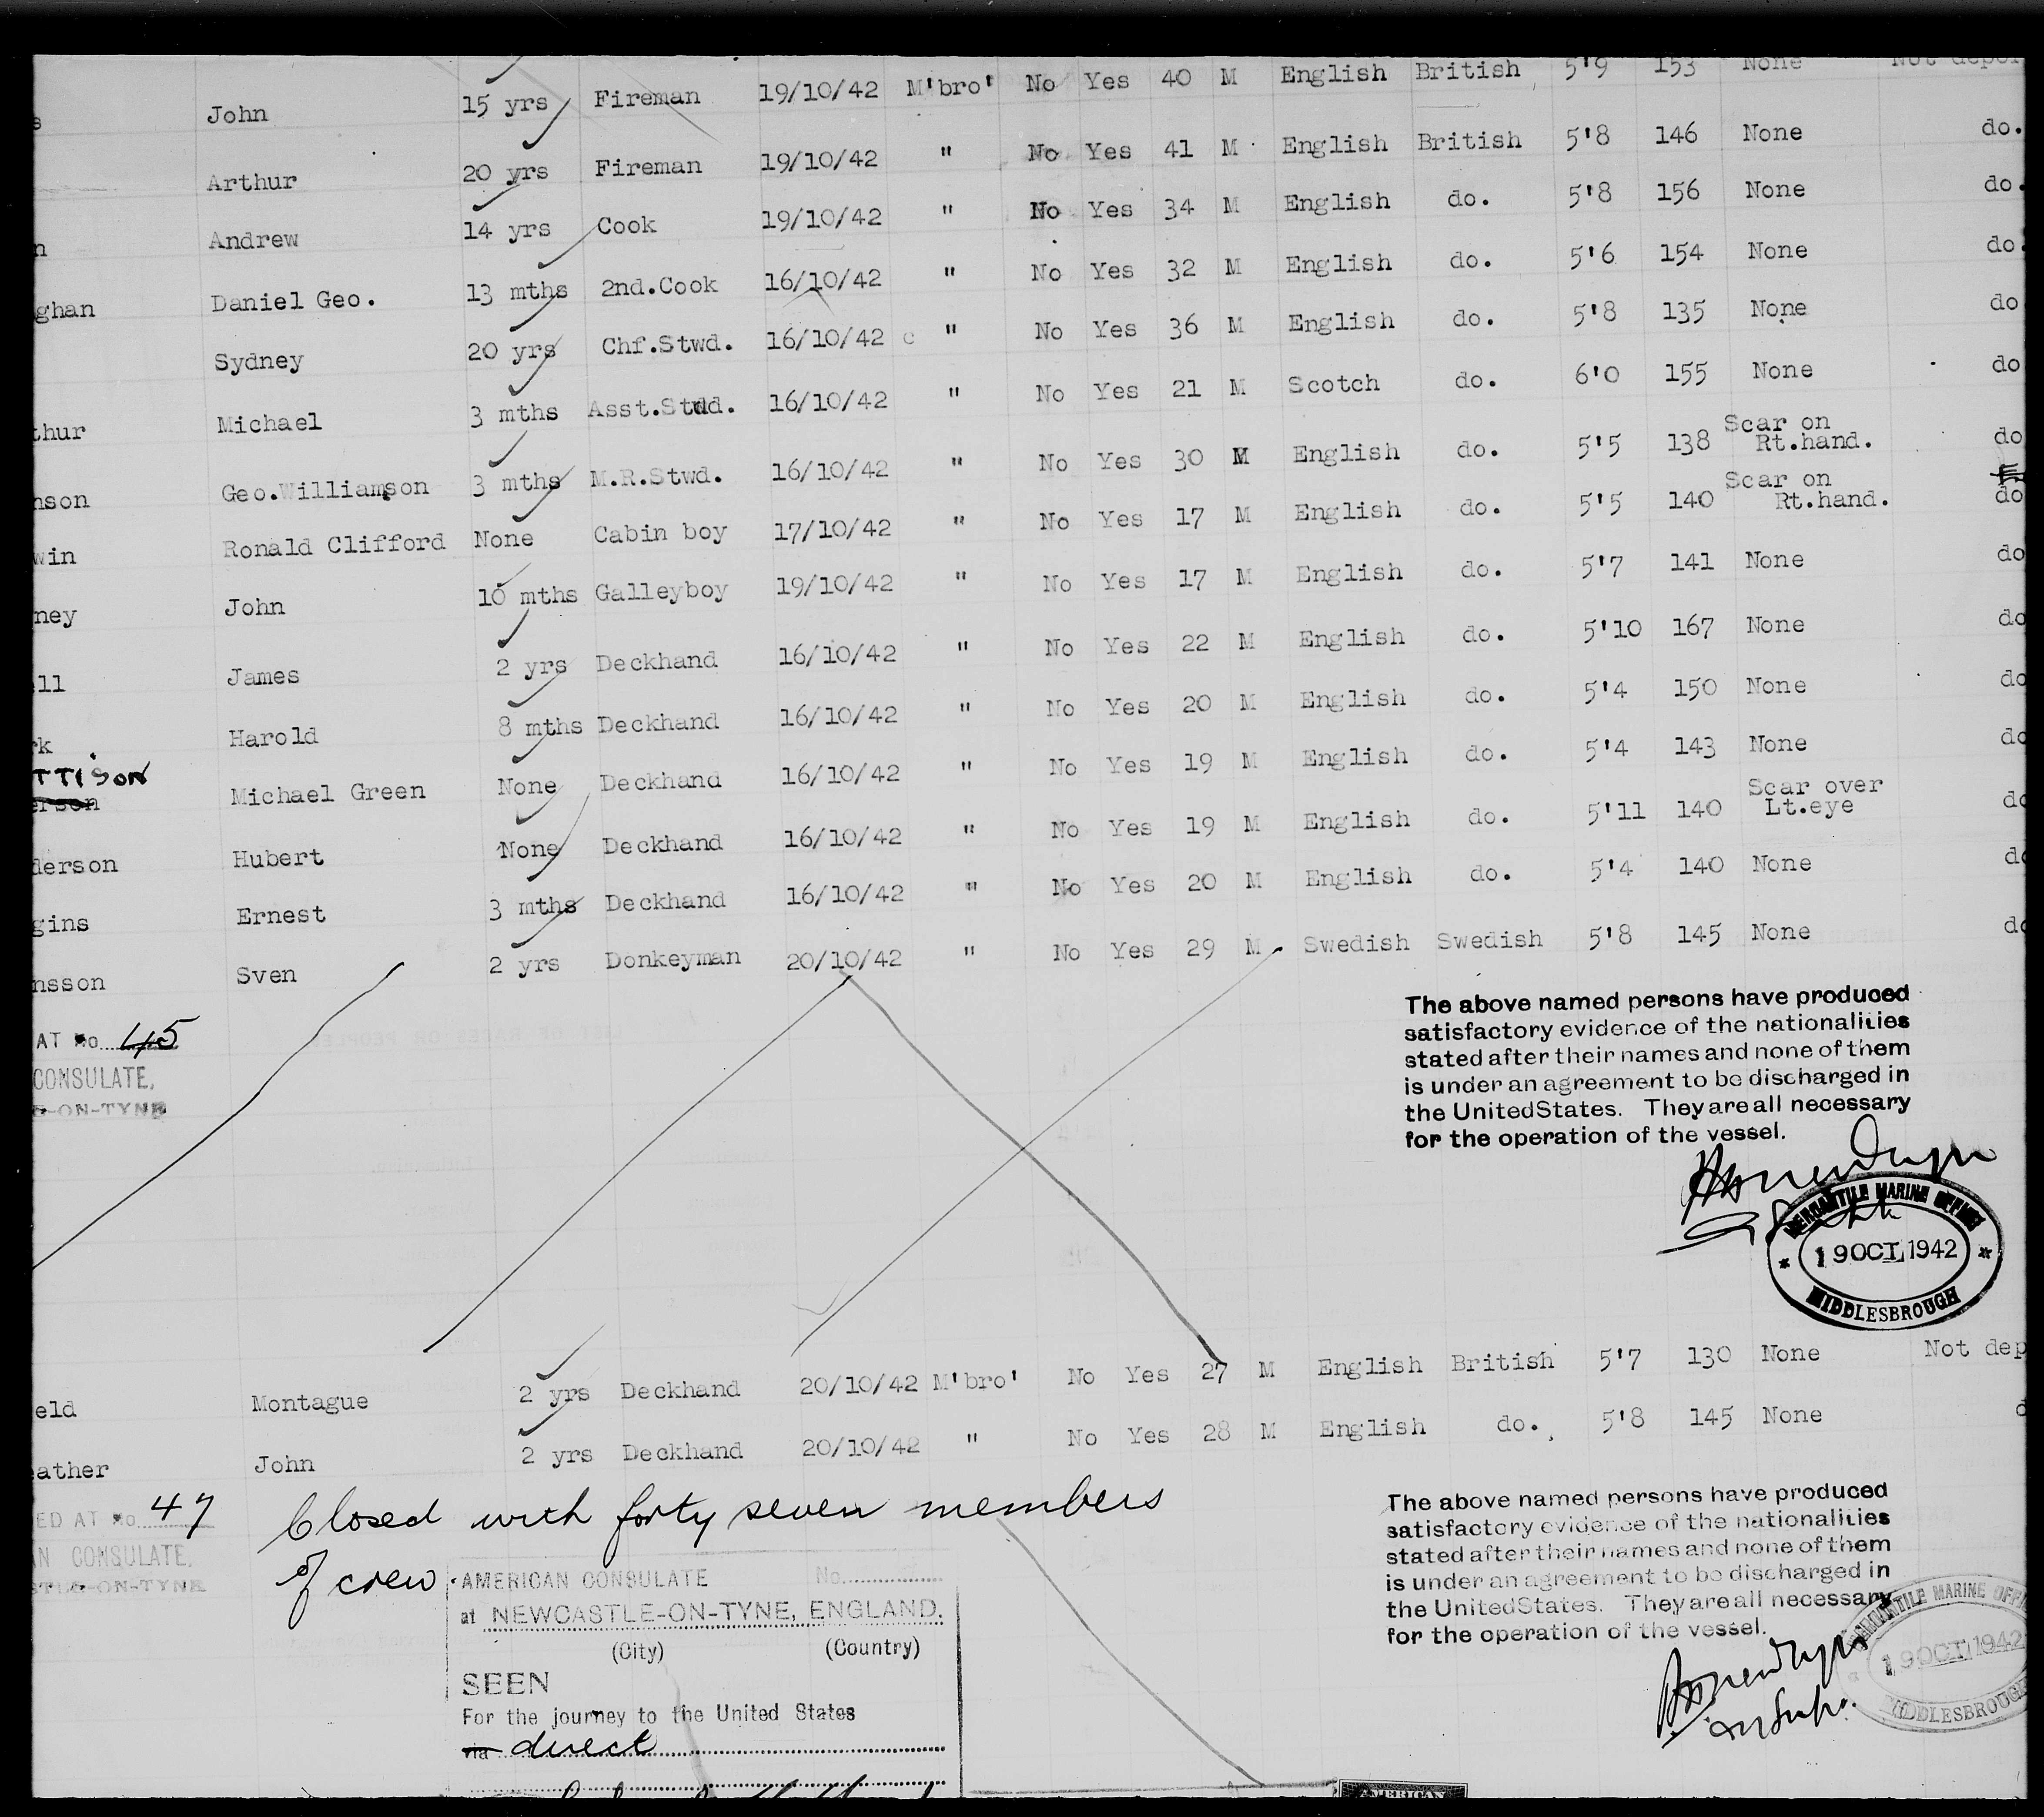 John 15 yrs Fireman 19/10/42 M'bro' No Yes 40 M English British 5'9 153 None
Arthur 20 yrs Fireman 19/10/42 " No Yes 41 M English British 5'8 146 None do.
Andrew 14 yrs Cook 19/10/42 " No Yes 34 M English do. 5'8 156 None do.
ghan Daniel Geo. 13 mths 2nd.Cook 16/10/42 " No Yes 32 M English do. 5'6 154 None do
Sydney 20 yrs Chf.Stwd. 16/10/42 " No Yes 36 M English do. 5'8 135 None do
thur Michael 3 mths Asst.Stwd. 16/10/42 " No Yes 21 M Scotch do. 6'0 155 None do
nson Geo.Williamson 3 mths M.R.Stwd. 16/10/42 " No Yes 30 M English do. 5'5 138 Scar on Rt.hand. do
win Ronald Clifford None Cabin boy 17/10/42 " No Yes 17 M English do. 5'5 140 Scar on Rt.hand. do
ney John 10 mths Galleyboy 19/10/42 " No Yes 17 M English do. 5'7 141 None do
ll James 2 yrs Deckhand 16/10/42 " No Yes 22 M English do. 5'10 167 None do
rk Harold 8 mths Deckhand 16/10/42 " No Yes 20 M English do. 5'4 150 None do
TTISON
erson Michael Green None Deckhand 16/10/42 " No Yes 19 M English do. 5'4 143 None do
derson Hubert None Deckhand 16/10/42 " No Yes 19 M English do. 5'11 140 Scar over Lt.eye do
gins Ernest 3 mths Deckhand 16/10/42 " No Yes 20 M English do. 5'4 140 None do
nsson Sven 2 yrs Donkeyman 20/10/42 " No Yes 29 M Swedish Swedish 5'8 145 None do
AT No. 45
CONSULATE,
E-ON-TYNE
The above named persons have produced
satisfactory evidence of the nationalities
stated after their names and none of them
is under an agreement to be discharged in
the United States. They are all necessary
for the operation of the vessel.
MERCANTILE MARINE OFFICE
19 OCT 1942
MIDDLESBROUGH
eld Montague 2 yrs Deckhand 20/10/42 M'bro' No Yes 27 M English British 5'7 130 None Not dep
eather John 2 yrs Deckhand 20/10/42 " No Yes 28 M English do. 5'8 145 None d
ED AT No. 47
AN CONSULATE,
STLE-ON-TYNE
Closed with forty seven members
of crew
AMERICAN CONSULATE No.
at NEWCASTLE-ON-TYNE, ENGLAND.
(City) (Country)
SEEN
For the journey to the United States
via direct
The above named persons have produced
satisfactory evidence of the nationalities
stated after their names and none of them
is under an agreement to be discharged in
the United States. They are all necessary
for the operation of the vessel.
MERCANTILE MARINE OFFI
19 OCT 1942
MIDDLESBROUGH
AMERICAN